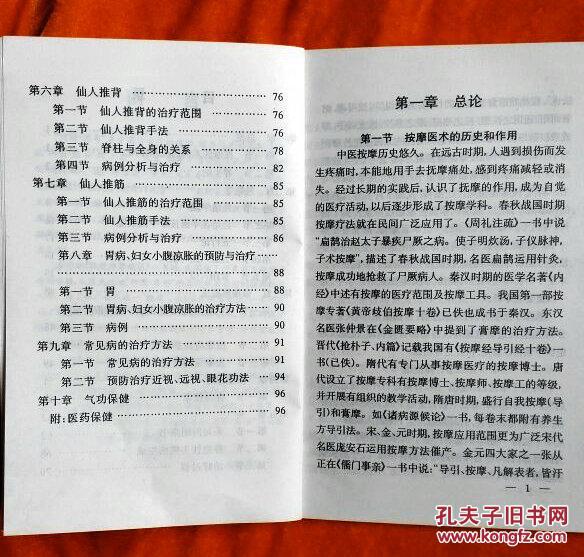 第六章 仙人推背 ………………………… 76
第一节 仙人推背的治疗范围 ………… 76
第二节 仙人推背手法 ………………… 76
第三节 脊柱与全身的关系 …………… 78
第四节 病例分析与治疗 ……………… 82
第七章 仙人推筋 ………………………… 85
第一节 仙人推筋的治疗范围 ………… 85
第二节 仙人推筋手法 ………………… 85
第三节 病例分析与治疗 ……………… 86
第八章 胃病、妇女小腹凉胀的预防与治疗 ……
………………………………………… 88
第一节 胃 ……………………………… 88
第二节 胃病、妇女小腹凉胀的治疗方法 … 90
第三节 病例 …………………………… 90
第九章 常见病的治疗方法 ……………… 91
第一节 常见病的治疗方法 …………… 91
第二节 预防治疗近视、远视、眼花功法 … 94
第十章 气功保健 ………………………… 96
附:医药保健 …………………………… 96
第一章 总论
第一节 按摩医术的历史和作用
中医按摩历史悠久。在远古时期,人遇到损伤而发
生疼痛时,本能地用手去抚摩痛处,感到疼痛减轻或消
失。经过长期的实践后,认识了抚摩的作用,成为自觉
的医疗活动,以后逐步形成了按摩学科。春秋战国时期
按摩疗法就在民间广泛应用了。《周礼注疏》一书中说
“扁鹊治赵太子暴疾尸厥之病。使子明炊汤,子仪脉神,
子术按摩”,描述了春秋战国时期,名医扁鹊运用针灸、
按摩成功地抢救了尸厥病人。秦汉时期的医学名著《内
经》中述有按摩的医疗范围及按摩工具。我国第一部按
摩专著《黄帝歧伯按摩十卷》已佚也成书于秦汉。东汉
名医张仲景在《金匮要略》中提到了膏摩的治疗方法。
晋代《抢朴子、内篇》记载我国有《按摩经导引经十卷》一
书(已佚)。隋代有专门从事按摩医疗的按摩博士。唐
代设立了按摩专科有按摩博士、按摩师、按摩工的等级,
并开展有组织的教学活动,隋唐时期,盛行自我按摩(导
引)和膏摩。如《诸病源候论》一书,每卷末都附有养生
方导引法。宋、金、元时期,按摩应用范围更为广泛宋代
名医庞安石运用按摩方法催产。金元四大家之一张从
正在《儒门事亲》一书中说:“导引、按摩、凡解表者,皆汗
— 1 —
孔夫子旧书网
www.kongfz.com